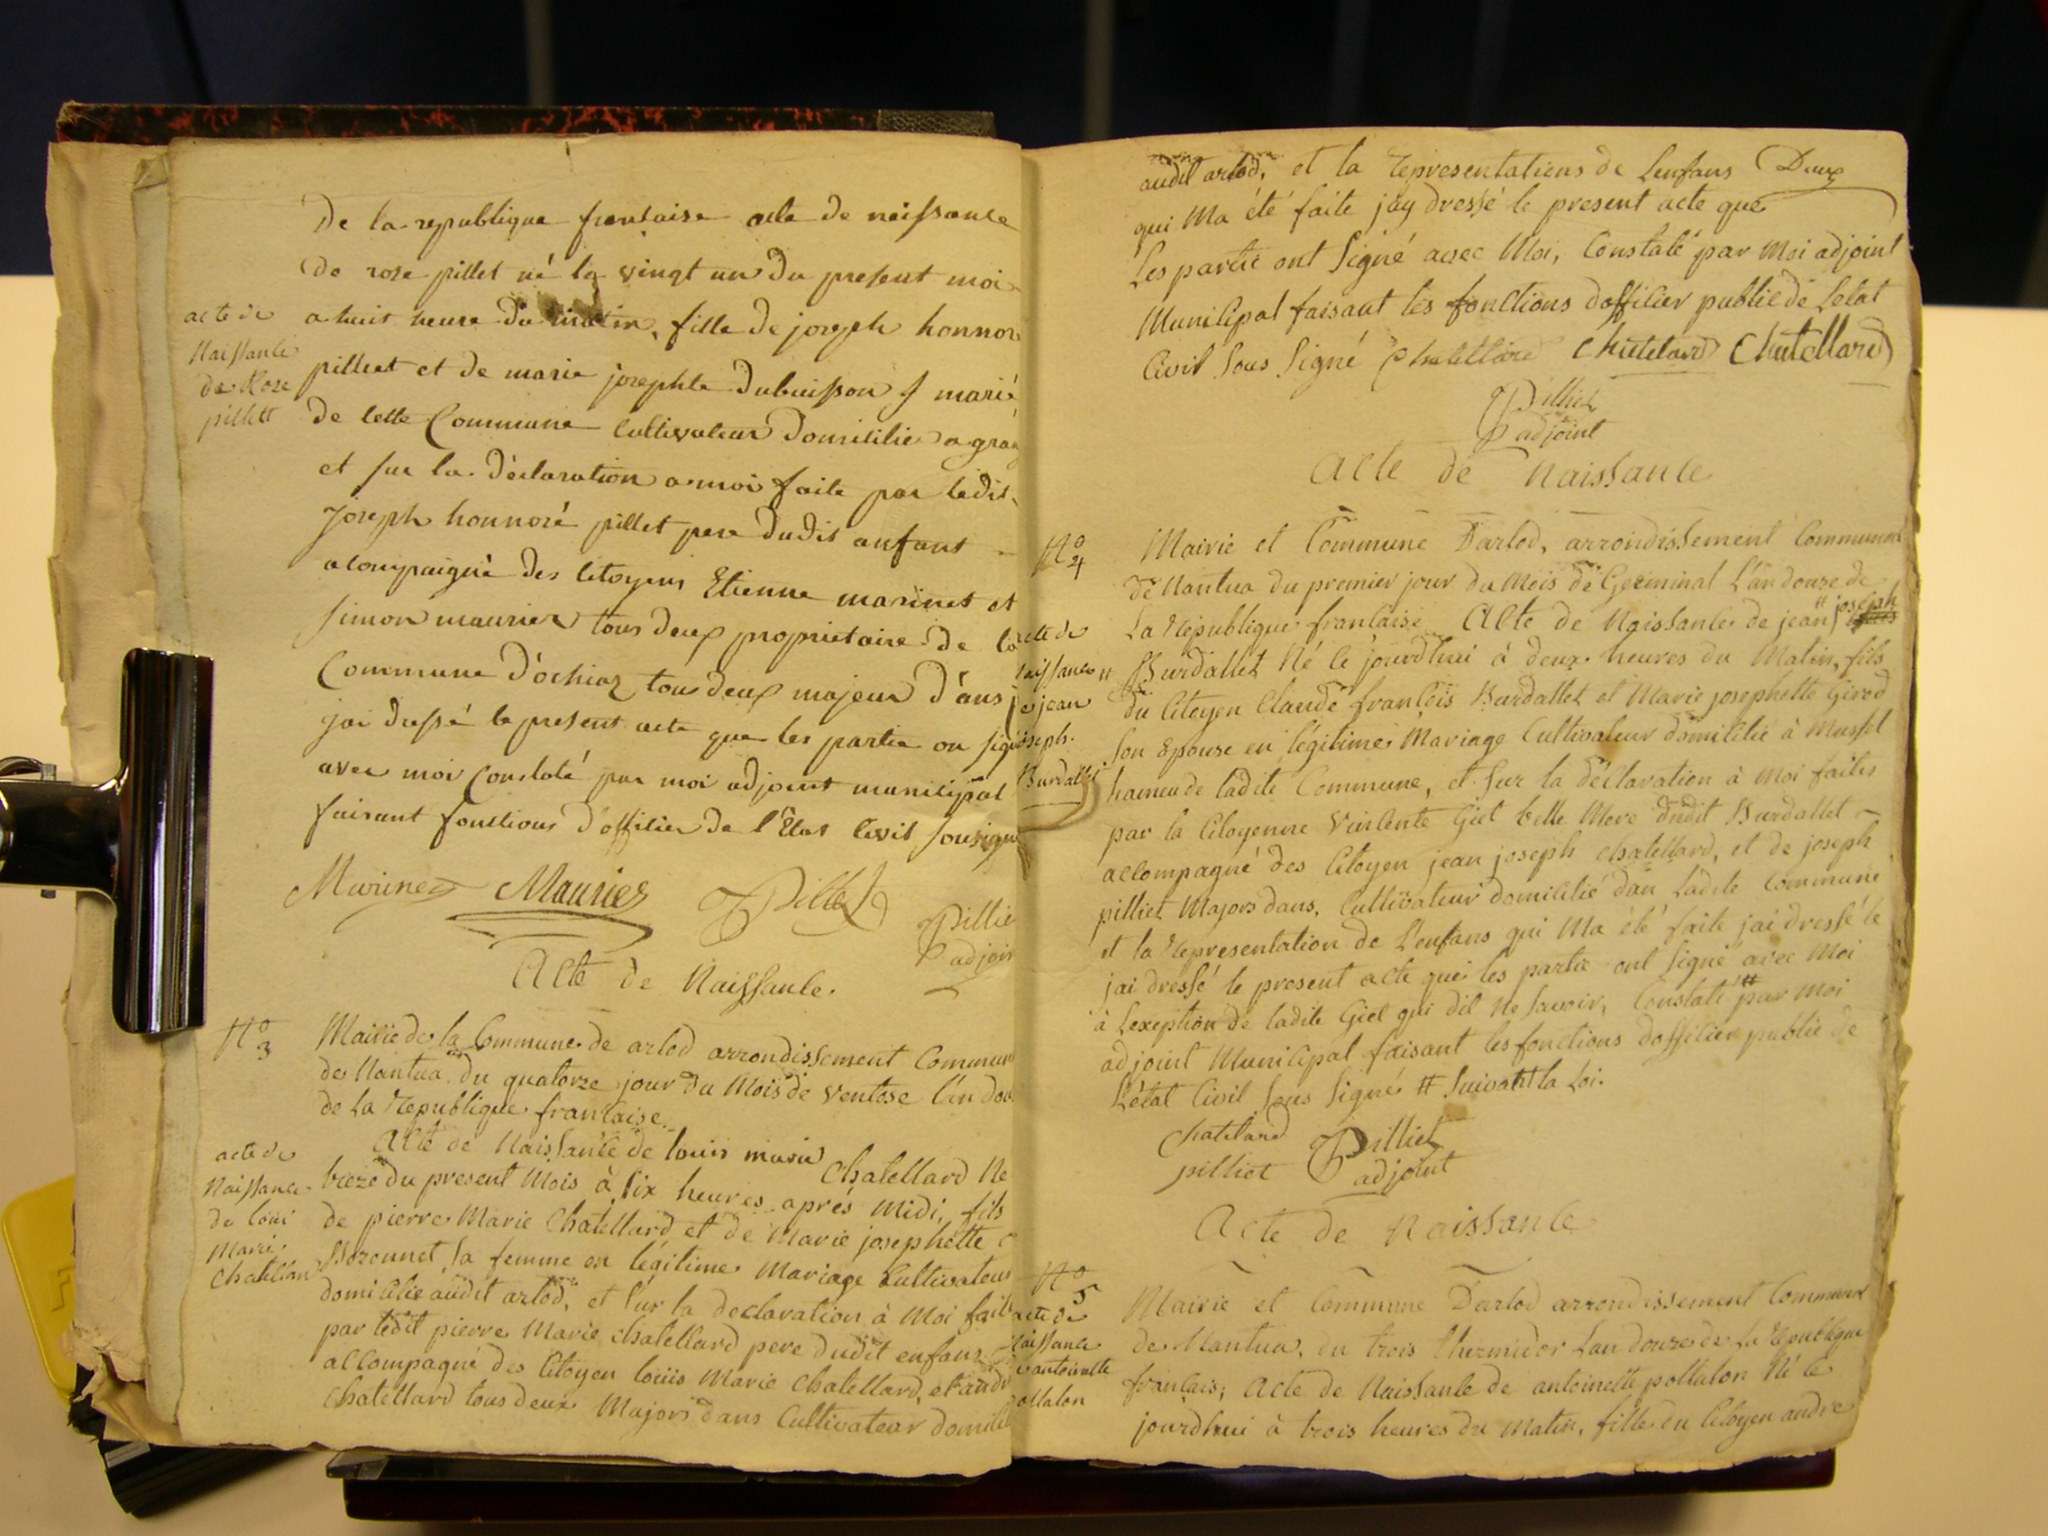 De la republique fransaise acte de naissance
de rose pillet né le vingt un du present moi
a huit heure du matin, fille de joseph honnor
pilliet et de marie josephte dubuisson
de cette Commune Cultivateur domicilie a
et sur la déclaration a moi faite par ledit
joseph honnoré pillet pere dudit anfant
acompaigné des citoyens Etienne marinet et
simon maurier tous deux proprietaire de la
Commune d'ochiaz tou deux majeur d'ans
jai dressé le present acte que les partie on signé
avec moi Constaté par moi adjoint municipal
faisant fonctions d'officier de l'Etat Civil sousigné
acte de
Naissance
de Rose
pillett
Marinet Maurier Pillet
Pilliet
adjoin
Acte de Naissance.
No 3
Mairie de la Commune de arlod arrondissement Commun
de Nantua du quatorze jour du Mois de Ventose l'an dou
de La Republique francaise.
Acte de Naissance de louis marie Chatellard Ne
treze du present Mois à six heures après Midi, fils
de pierre Marie Chatellard et de Marie josephette
sa femme en légitime Mariage Cultivateur
domicilié audit arlod, et sur la declaration à Moi faite
par ledit pierre Marie chatellard pere dudit enfans
accompagné des Citoyen louis Marie chatellard, et andr
chatellard tous deux Majors dans Cultivateur domicil
acte de
Naissance
de loui
Marie
Chatellard
audit arlod, et la representations de Lenfans Deux
qui Ma été faite jay dressé le present acte que
Les partie ont signé avec Moi, Constaté par Moi adjoint
Municipal faisant les fonctions dofficier public de Letat
Civil sous signé Chatellard Chatelard Chatellard
Pilliet
adjoint
Acte de Naissance
No 4
Mairie et Commune Darlod, arrondissement Communal
de Nantua du premier jour du Mois de Germinal L'an douze de
La Republique francaise Acte de Naissance de jean # joseph
Burdallet Né le jourdhui à deux heures du Matin, fils
du Citoyen Claude francois Burdallet et Marie josephette Girod
son Epouse en légitime Mariage Cultivateur domicilié à Mussel
hameu de ladite Commune, et sur la déclaration à Moi faites
par la Citoyenne Vincente Giet belle Mere dudit Burdallet
accompagné des Citoyen jean joseph chatellard, et de joseph
pilliet Majors dans, Cultivateur domicilié dan Ladite Commune
et la Representation de L'enfans qui Ma été faite jai dressé le
jai dressé le present acte que les partie ont signé avec Moi
à Lexeption de ladite Giet qui dit Ne savoir, Constaté # par Moi
adjoint Municipal faisant les fonctions dofficier public de
Létat Civil sous signé # suivatt la Loi.
acte de
naissance #
de jean
joseph.
Burdallet
chatelard Pilliet
pilliet adjoint
Acte de Naissance
No 5
Mairie et Commune Darlod arrondissement Communal
de Nantua, du trois thermidor Lan douze de La Republique
francais, Acte de Naissance de antoinette pollaton Né le
jourdhui à trois heures du Matin, fille du Citoyen andre
acte de
naissance
d'antoinette
pollaton